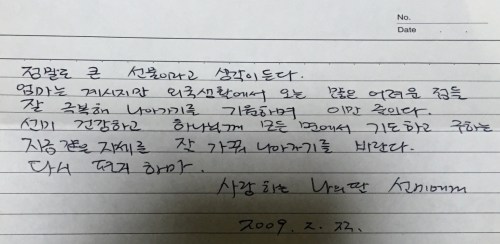 No.
Date
정말로 큰 선물이라고 생각이 든다.
엄마는 계시지만 외국생활에서 오는 많은 어려운 점들
잘 극복해 나아가기를 기원하며 이만 줄이다.
선미 건강하고 하나님께 모든 면에서 기도하고 구하는
지금 같은 자세를 잘 가꿔 나아가기를 바란다.
다시 편지 하마.
사랑하는 나의 딸 선미에게
2009. 2. 22.